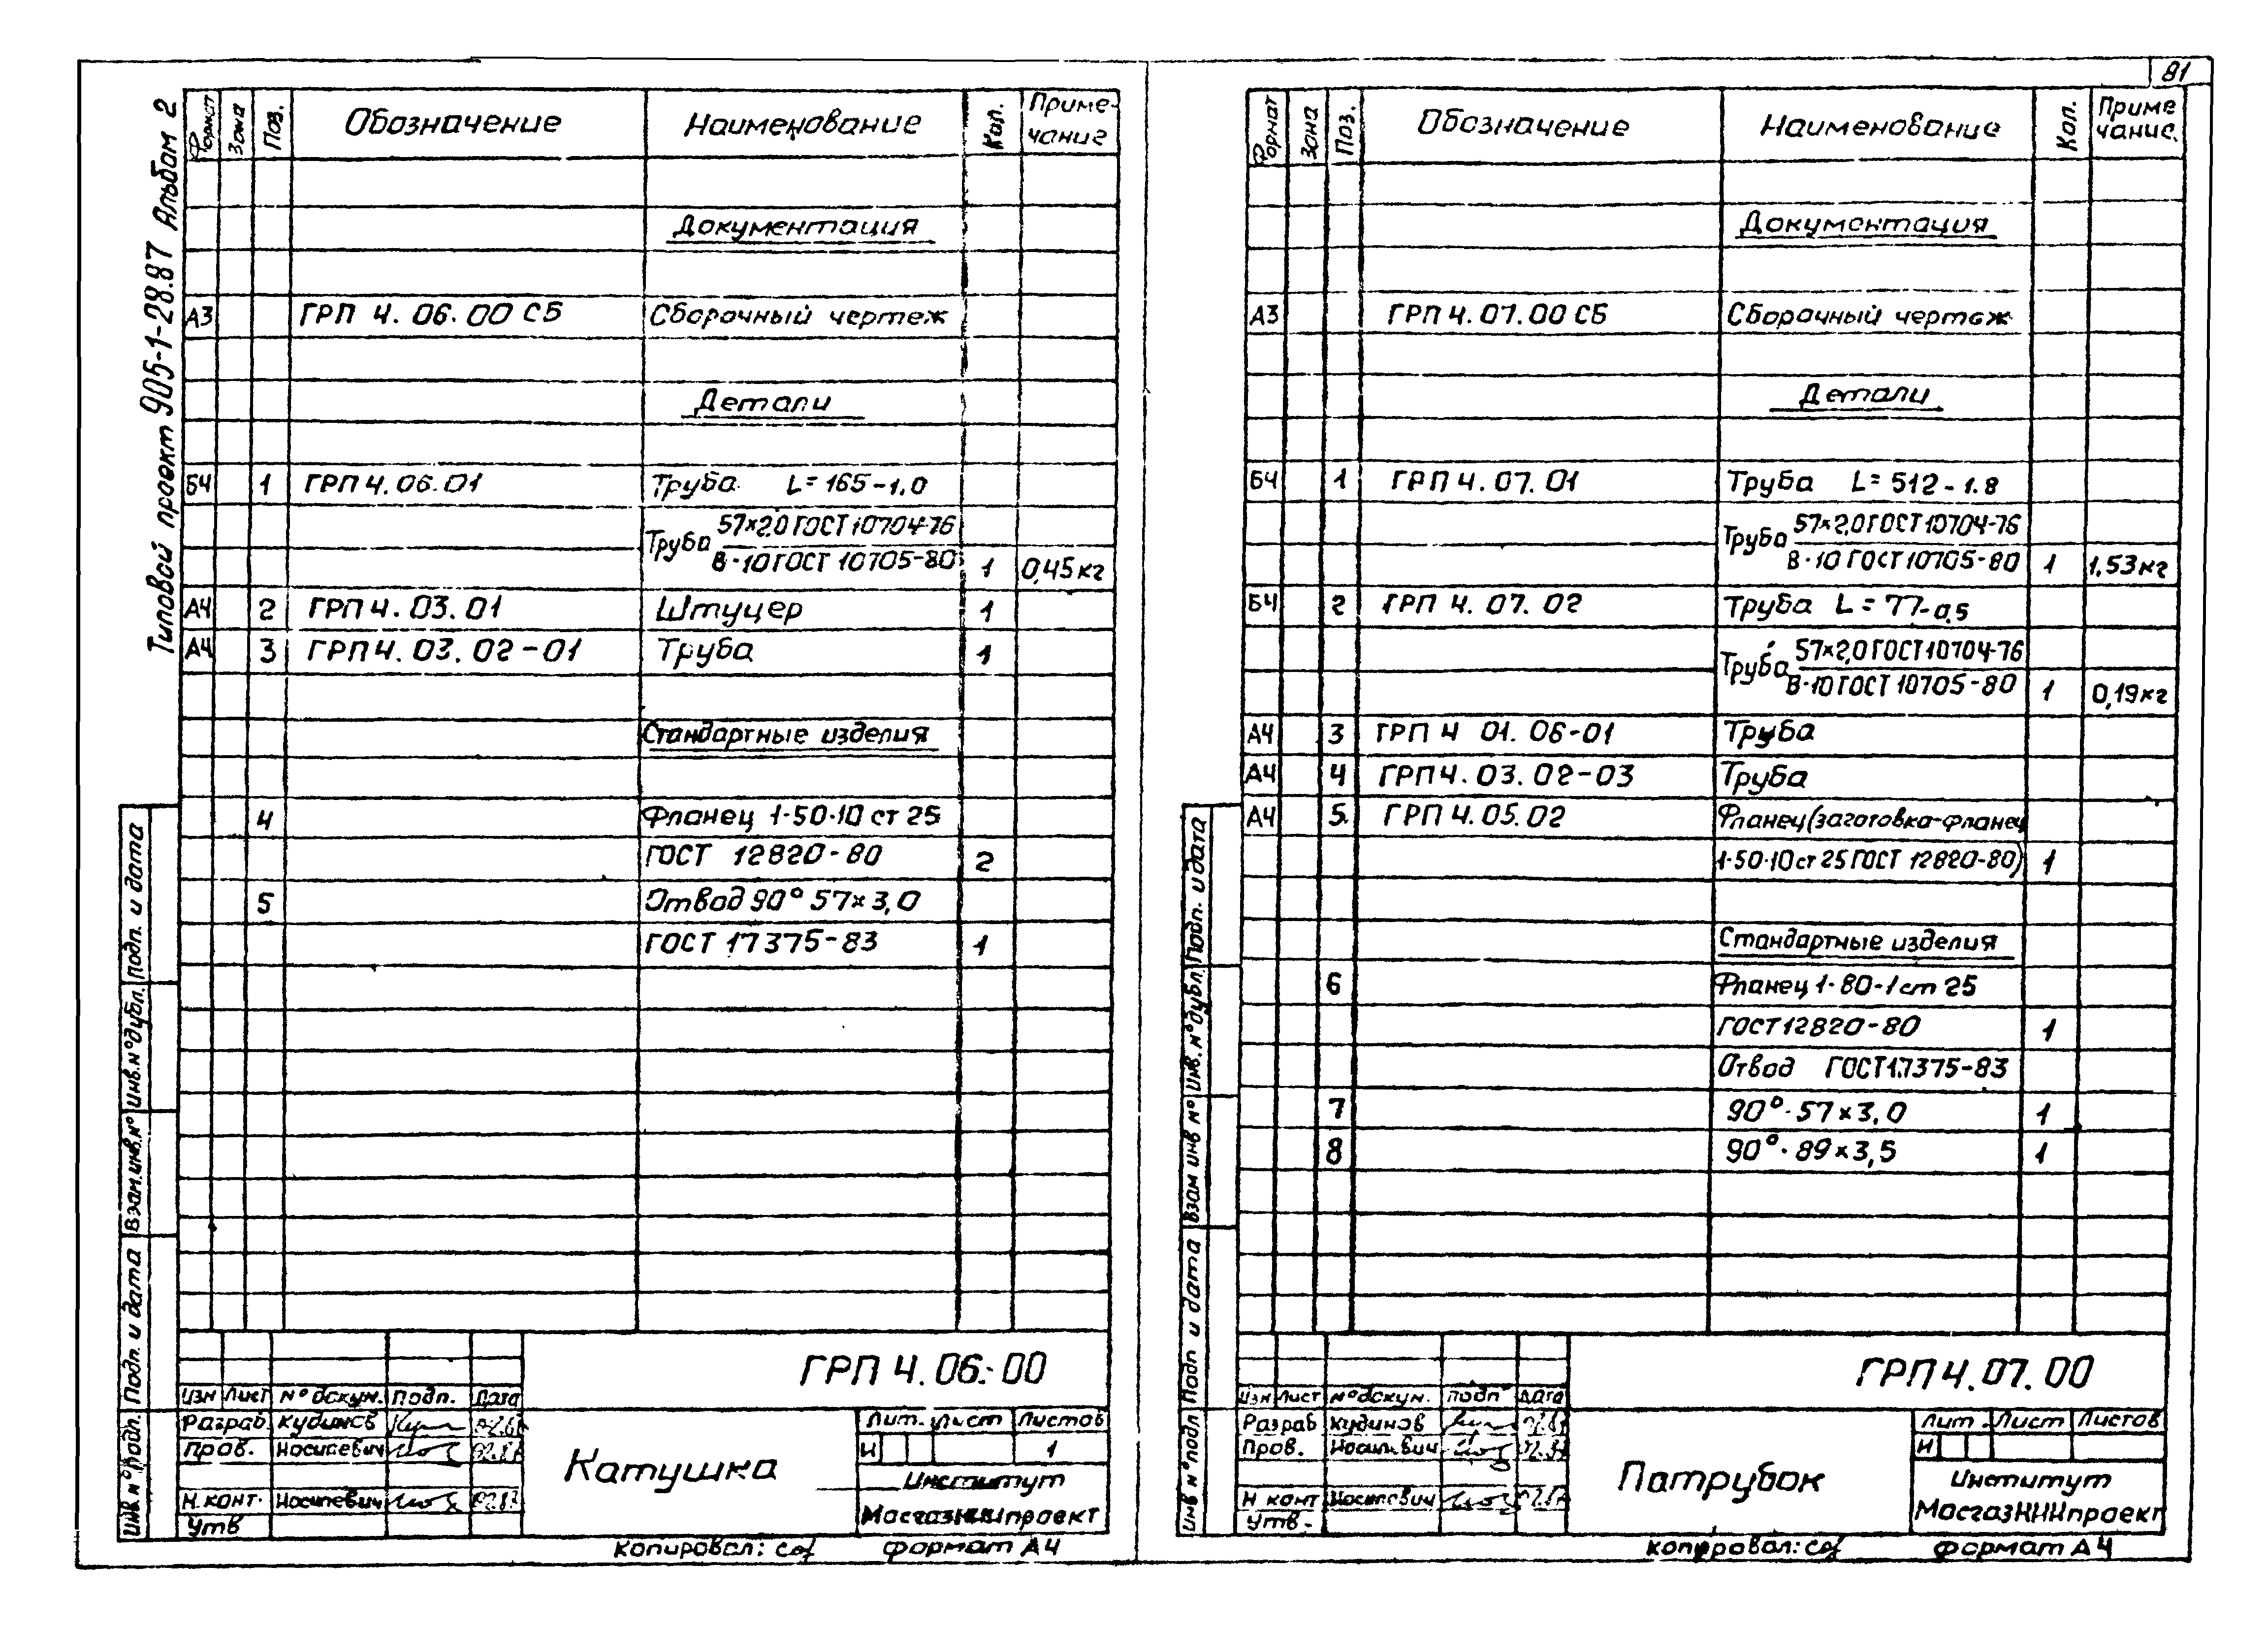 81
Типовой проект 905-1-28.87 Альбом 2
Формат Зона Поз. Обозначение Наименование Кол. Приме-
чание
Документация
А3 ГРП 4.06.00 СБ Сборочный чертеж
Детали
БЧ 1 ГРП 4.06.01 Труба L=165-1,0
57×2,0 ГОСТ 10704-76
Труба
В-10 ГОСТ 10705-80 1 0,45кг
А4 2 ГРП 4.03.01 Штуцер 1
А4 3 ГРП 4.03.02-01 Труба 1
Стандартные изделия
4 Фланец 1-50-10 ст 25
ГОСТ 12820-80 2
5 Отвод 90° 57×3,0
ГОСТ 17375-83 1
Инв.№ подл. Подп. и дата Взам.инв.№ Инв.№ дубл. Подп. и дата
ГРП 4.06.00
Изм Лист № докум. Подп. Дата
Разраб. Кудинов
Пров. Носилевич
Н.конт. Носилевич
Утв
Катушка
Лит. Лист Листов
И 1
Институт
МосгазНИИпроект
Копировал: Формат А4
Формат Зона Поз. Обозначение Наименование Кол. Приме
чание.
Документация
А3 ГРП 4.07.00 СБ Сборочный чертеж
Детали
БЧ 1 ГРП 4.07.01 Труба L=512-1.8
57×2,0 ГОСТ 10704-76
Труба
В-10 ГОСТ 10705-80 1 1,53кг
БЧ 2 ГРП 4.07.02 Труба L=77-0,5
57×2,0 ГОСТ 10704-76
Труба
В-10 ГОСТ 10705-80 1 0,19кг
А4 3 ГРП 4 01.06-01 Труба
А4 4 ГРП 4.03.02-03 Труба
А4 5. ГРП 4.05.02 Фланец(заготовка-фланец
1-50-10 ст 25 ГОСТ 12820-80) 1
Стандартные изделия
6 Фланец 1-80-1 ст 25
ГОСТ 12820-80 1
Отвод ГОСТ 17375-83
7 90°-57×3,0 1
8 90°-89×3,5 1
Инв № подл Подп и дата Взам инв № Инв.№ дубл. Подп. и дата
ГРП 4.07.00
Изм Лист № докум. Подп Дата
Разраб Кудинов
Пров. Носилевич
Н конт Носилевич
Утв.
Патрубок
Лит. Лист Листов
И
Институт
МосгазНИИпроект
Копировал: Формат А4